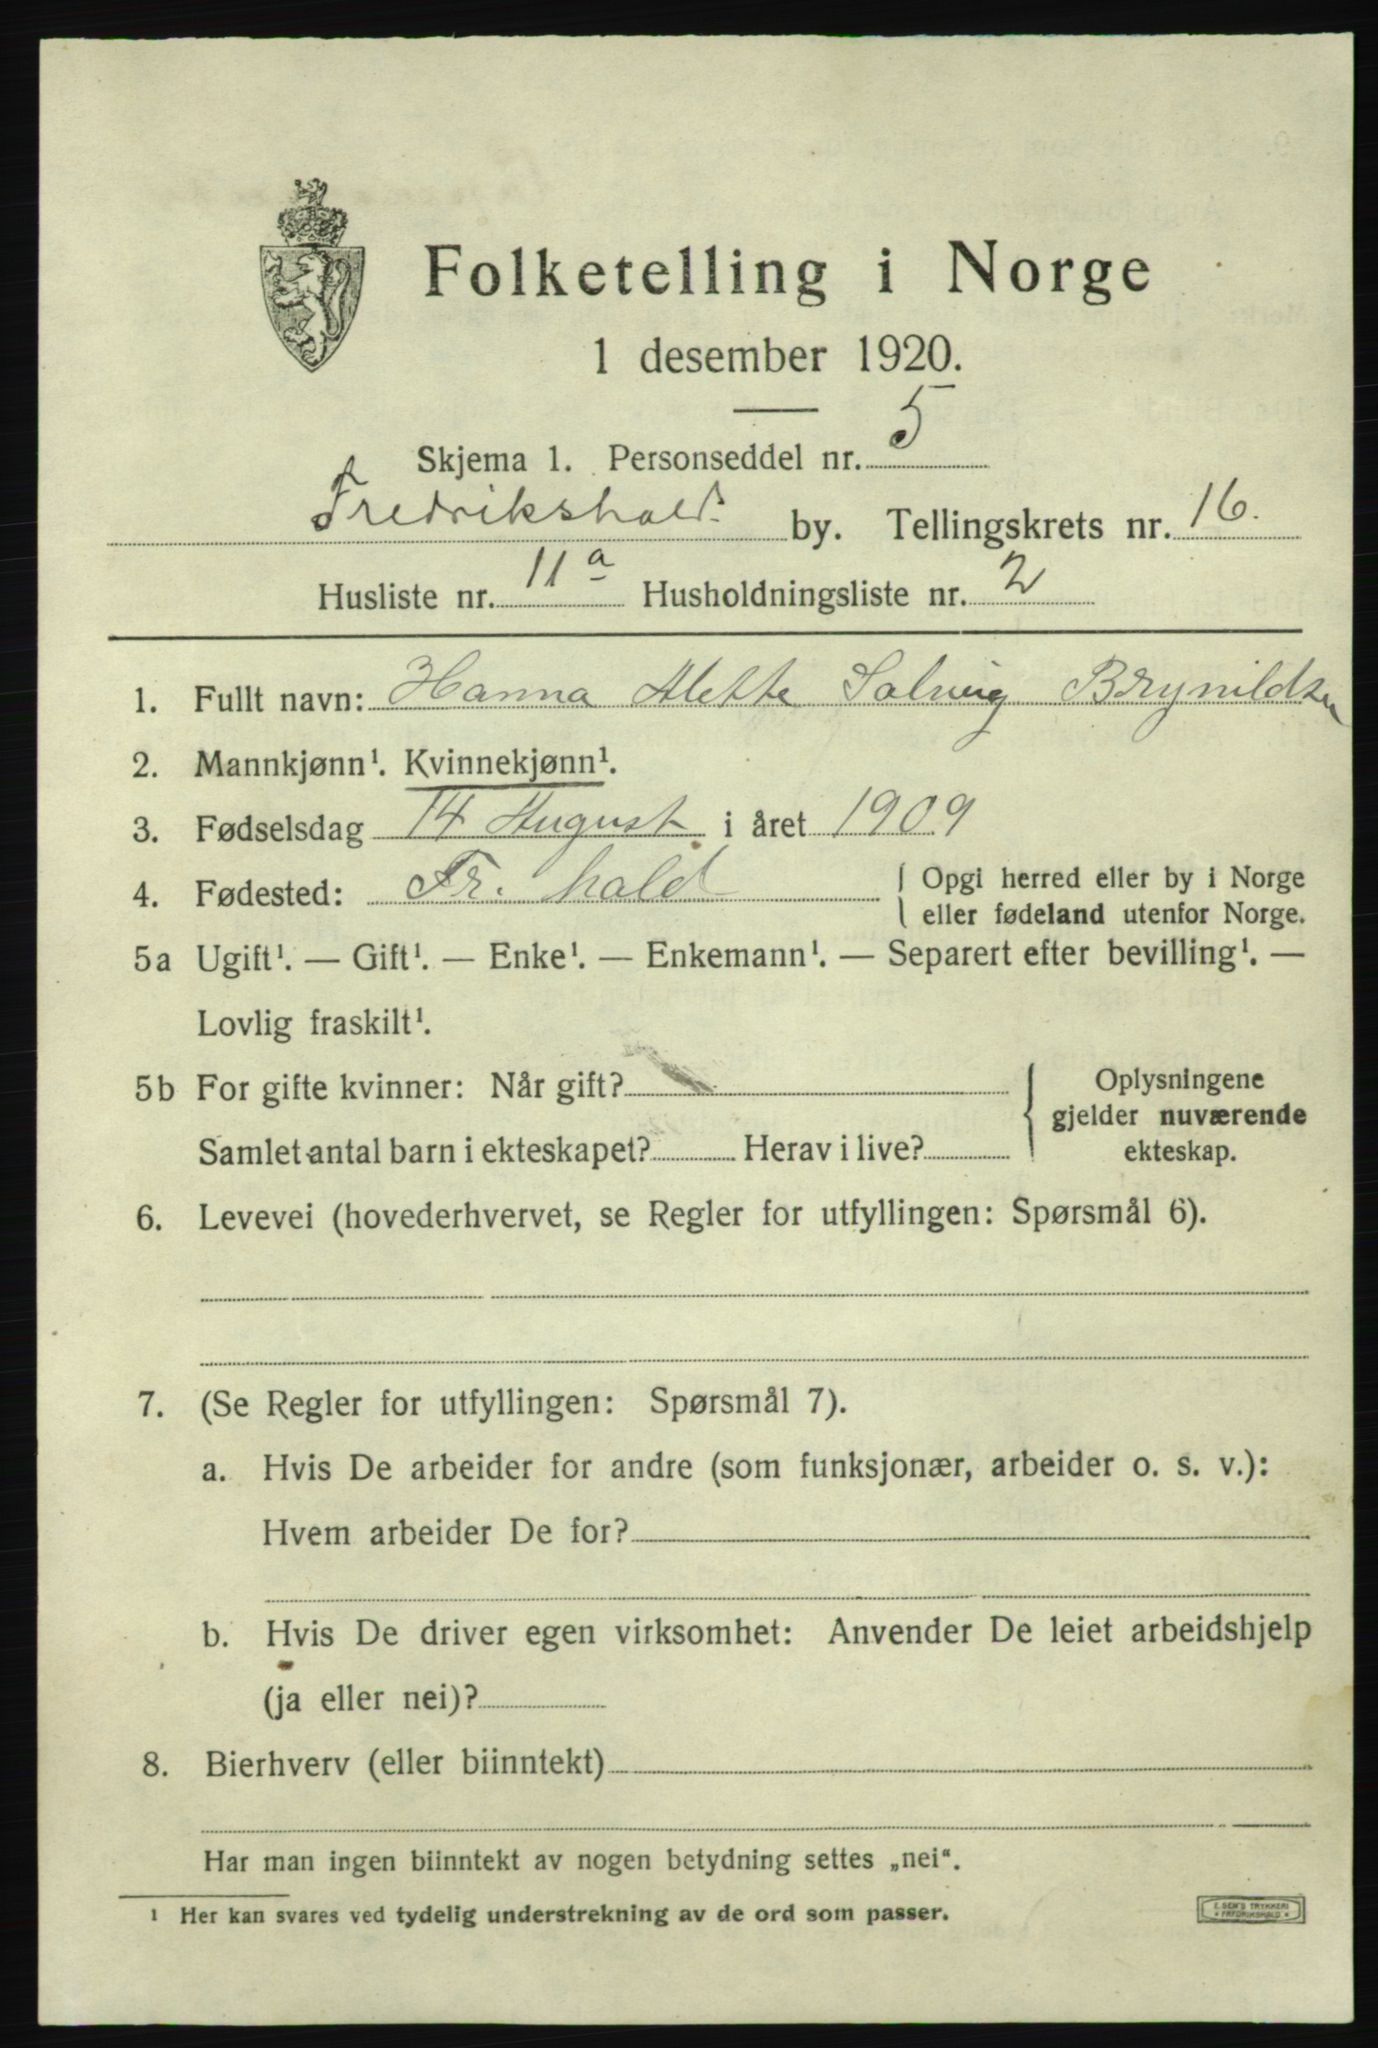 Folketelling i Norge
1 desember 1920.
Skjema 1. Personseddel nr. 5
Fredrikshald. by. Tellingskrets nr. 16.
Husliste nr. 11a Husholdningsliste nr. 2
1. Fullt navn: Hanna Alette Solveig Brynildsen
2. Mannkjønn¹. Kvinnekjønn¹.
3. Fødselsdag 14 August i året 1909
4. Fødested: Fr. hald { Opgi herred eller by i Norge
eller fødeland utenfor Norge.
5a Ugift¹. — Gift¹. — Enke¹. — Enkemann¹. — Separert efter bevilling¹. —
Lovlig fraskilt¹.
5b For gifte kvinner: Når gift? Oplysningene
gjelder nuværende
Samlet antal barn i ekteskapet? Herav i live? ekteskap.
6. Levevei (hovederhvervet, se Regler for utfyllingen: Spørsmål 6).
7. (Se Regler for utfyllingen: Spørsmål 7).
a. Hvis De arbeider for andre (som funksjonær, arbeider o. s. v.):
Hvem arbeider De for?
b. Hvis De driver egen virksomhet: Anvender De leiet arbeidshjelp
(ja eller nei)?
8. Bierhverv (eller biinntekt)
Har man ingen biinntekt av nogen betydning settes „nei“.
¹ Her kan svares ved tydelig understrekning av de ord som passer.
E. SEM'S TRYKKERI
FREDRIKSHALD